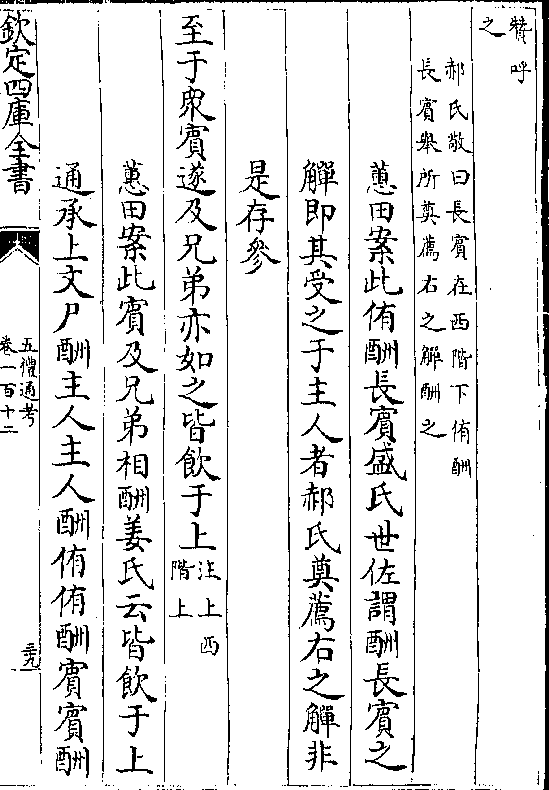 贊呼
之
郝氏敬曰長賓在西階下侑酬
長賓舉所奠薦右之觶酬之
蕙田案此侑酬長賓盛氏世佐謂酬長賓之
觶即其受之于主人者郝氏奠薦右之觶非
是存參
至于眾賓遂及兄弟亦如之皆飲于上注上西
階上
蕙田案此賓及兄弟相酬姜氏云皆飲于上
通承上文尸酬主人主人酬侑侑酬賓賓酬
欽定四庫全書
五禮通考
卷一百十二
三九